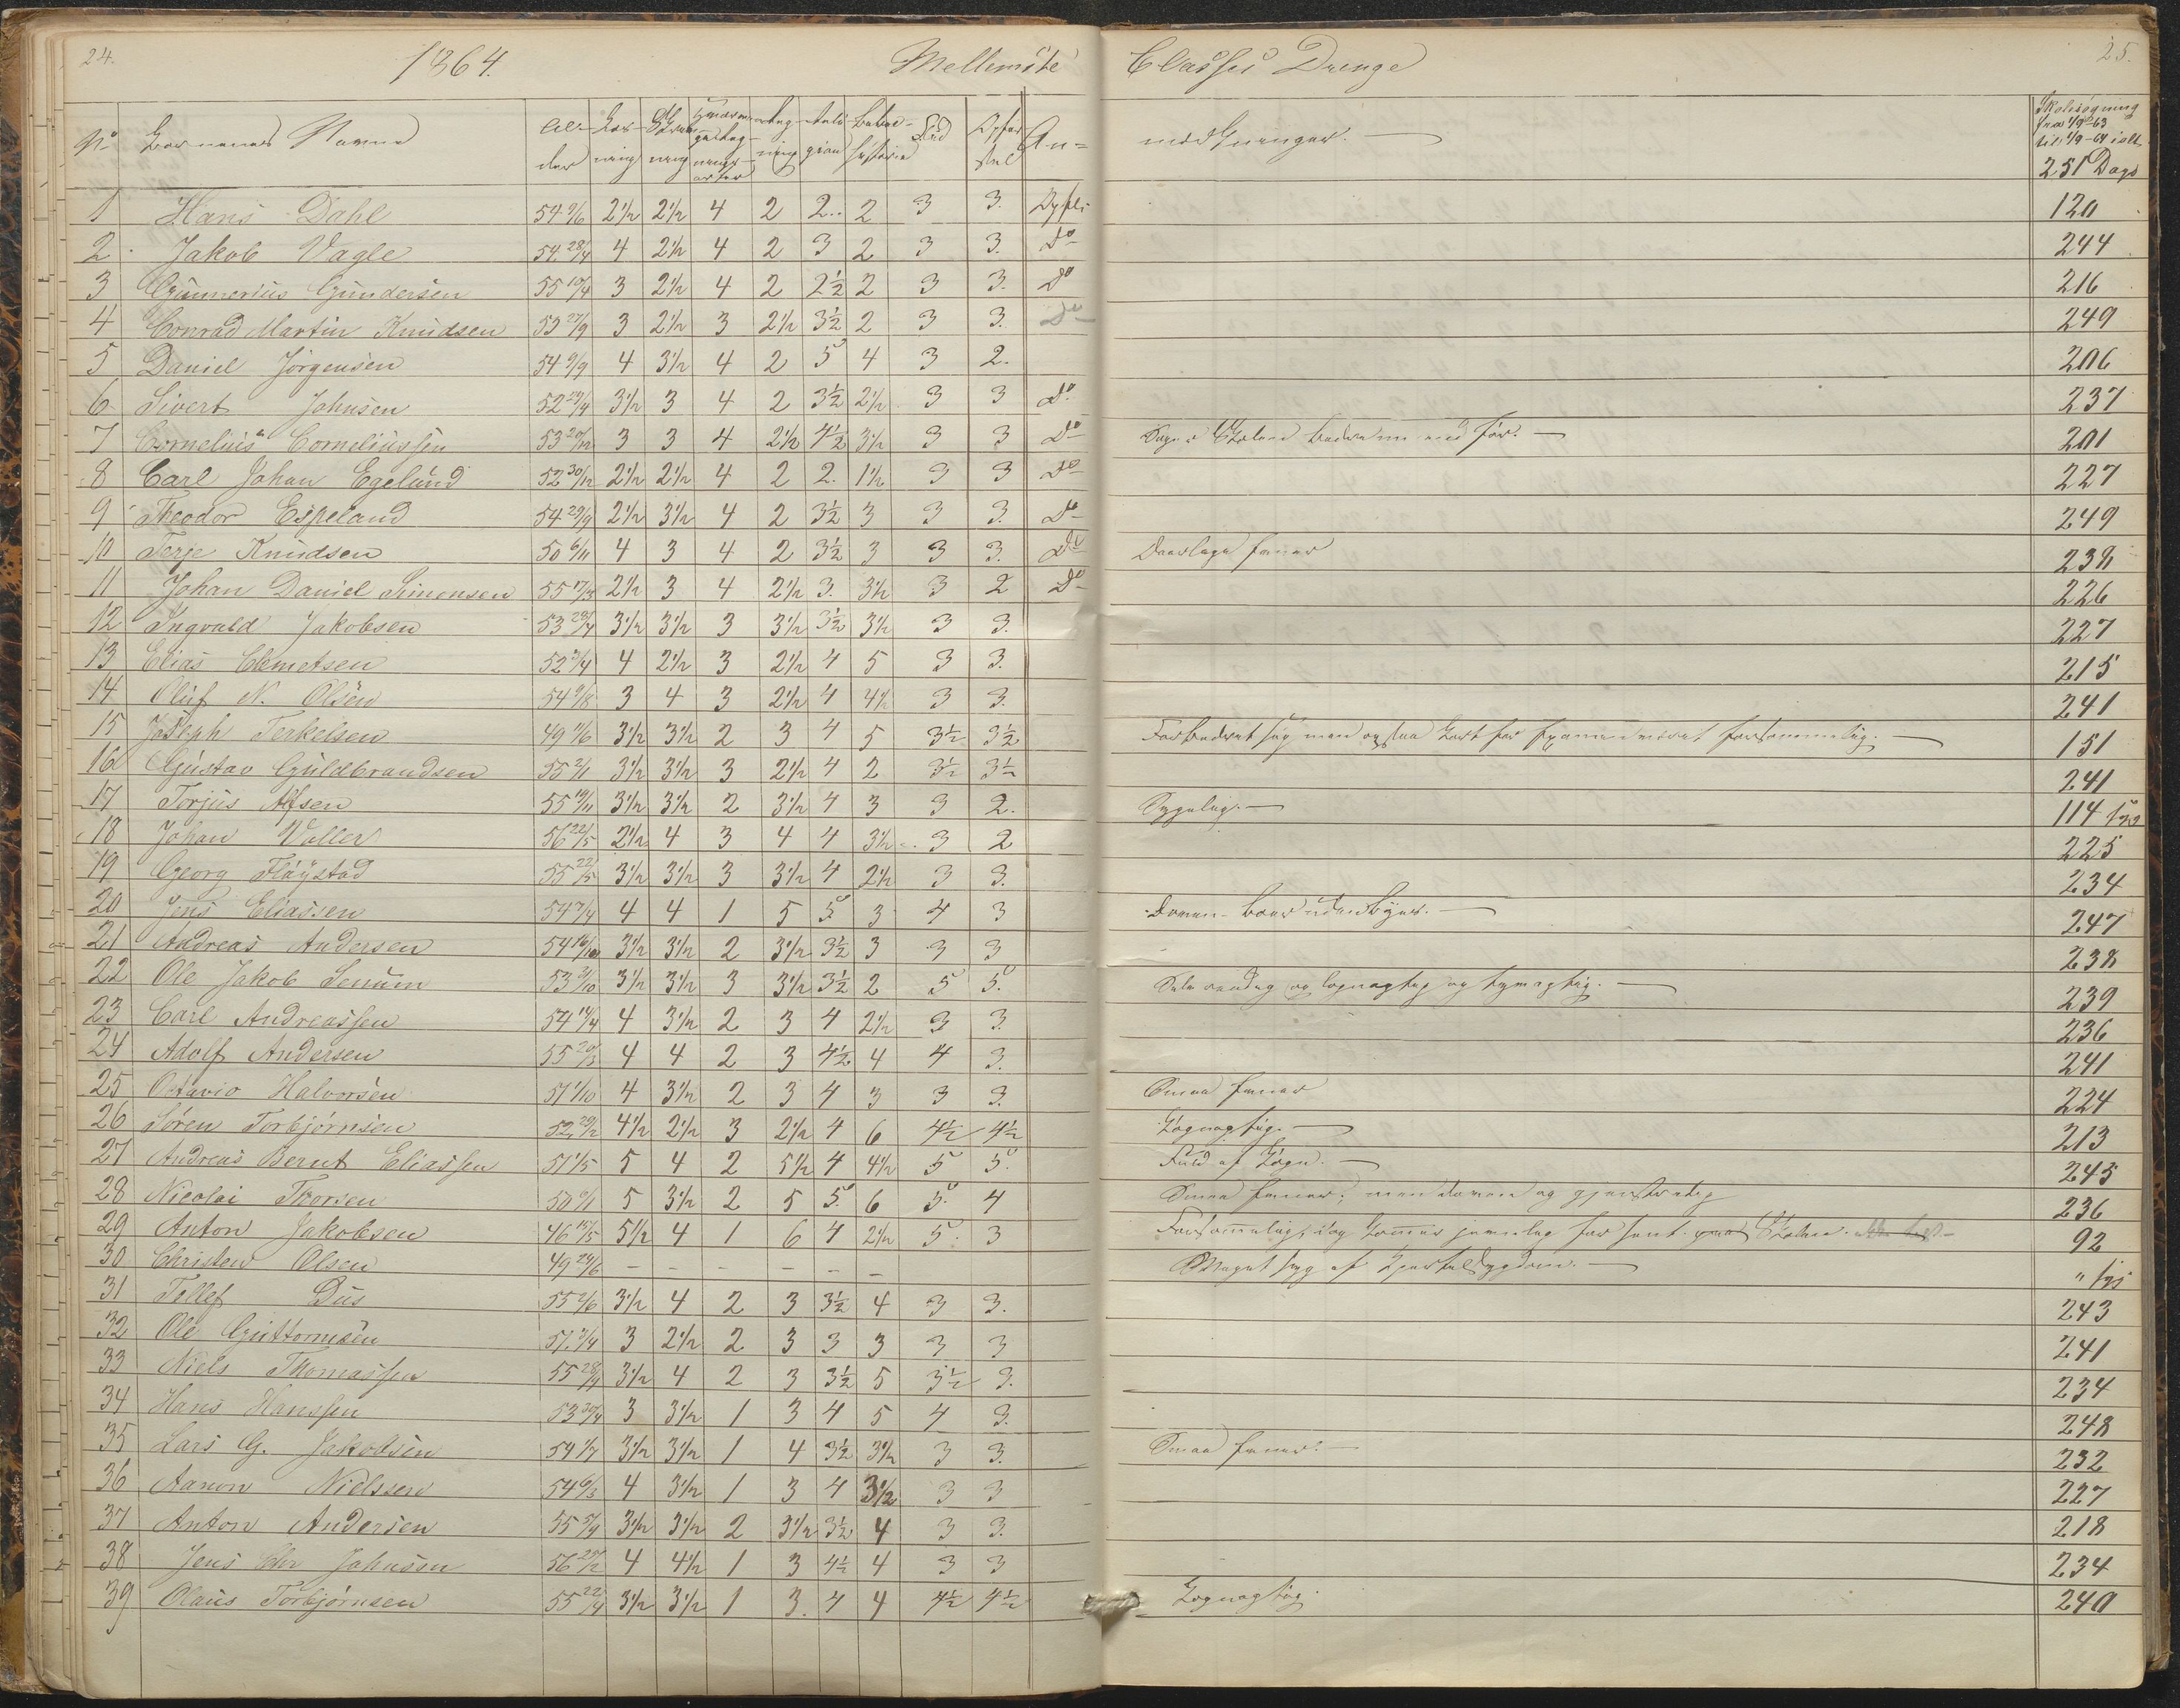 24. 1864. Mellemste Classes Drenge 25.
No Børnenes Navne Alder Læsning Skrivning Regning Religion Bibelhistorie Flid Opførsel Anmærkninger. Skolesøgning fra 1/9-63 til 1/9-64 ialt 251 Dage
1 Hans Dahl 54 9/6 2½ 2½ 4 2 2 2 3 3. Opfl. 120
2 Jakob Vagle 54 28/4 4 2½ 4 2 3 2 3 3. Do 244
3 Gunnerius Gundersen 55 10/4 3 2½ 4 2 2½ 2 3 3. Do 216
4 Conrad Martin Knudsen 53 27/9 3 2½ 3 2½ 3½ 2 3 3. Do 249
5 Daniel Jørgensen 54 9/9 4 3½ 4 2 5 4 3 2. 206
6 Sivert Johnsen 52 29/4 3½ 3 4 2 3½ 2½ 3 3 Do 237
7 Cornelius Corneliussen 53 20/12 3 3 4 2½ 4½ 3½ 3 3 Do Søger Skolen bedre nu end før. 201
8 Carl Johan Egelund 52 30/12 2½ 2½ 4 2 2. 1½ 3 3 Do 227
9 Theodor Espeland 54 29/9 2½ 3½ 4 2 3½ 3 3 3. Do 249
10 Terje Knudsen 50 6/11 4 3 4 2 3½ 3 3 3. Do Daarlige Evner 238
11 Johan Daniel Simonsen 55 17/3 2½ 3 4 2½ 3. 3½ 3 2 Do 226
12 Ingvald Jakobsen 53 28/7 3½ 3½ 3 3½ 3½ 3½ 3 3. 227
13 Elias Clemetsen 52 4 2½ 3 2½ 4 5 3 3. 215
14 Oluf N. Olsen 54 9/8 3 4 3 2½ 4 4½ 3 3. 241
15 Joseph Terkelsen 49 11/6 3½ 3½ 2 3 4 5 3½ 3½ Forbedret sig men ogsaa kort før Examen været forsømmelig. 151
16 Gustav Guldbrandsen 55 2/1 3½ 3½ 3 2½ 4 2 3½ 3½ 241
17 Torjus Alfsen 55 19/11 3½ 3½ 2 3½ 4 3 3 2. Sygelig. 114 syg
18 Johan Voller 56 22/5 2½ 4 3 4 4 3½ 3 2 225
19 Georg Fløystad 55 22/5 3½ 3½ 3 3½ 4 2½ 3 3. 234
20 Jens Eliassen 54 7/4 4 4 1 5 5 3 4 3 Doven - boer udenbyes. 247
21 Andreas Andersen 54 16/10 3½ 3½ 2 3½ 3½ 3 3 3 238
22 Ole Jakob Senum 53 3/10 3½ 3½ 3 3½ 3½ 2 5 5. og løgnagtig og tyvagtig. 239
23 Carl Andreassen 54 14/4 4 3½ 2 3 4 2½ 3 3. 236
24 Adolf Andersen 55 20/3 4 4 2 3 4½ 4 4 3. 241
25 Octavio Halvorsen 51 1/10 4 3½ 2 3 4 3 3 3. Smaa Evner 224
26 Søren Torbjørnsen 52 29/2 4½ 2½ 3 2½ 4 6 4½ 4½ Løgnagtig. 213
27 Andreas Bernt Eliassen 51 1/5 5 4 2 5½ 4 4½ 5 5. Fuld af Løgn. 245
28 Nicolai Thorsen 50 6/1 5 3½ 2 5 5. 6 5. 4 Smaa Evner, men doven og gjenstridig 236
29 Anton Jakobsen 46 15/5 5½ 4 1 6 4 2½ 5. 3 Forsømmelig, og kommer jævnlig for sent paa Skolen. 92
30 Christen Olsen 49 24/6 - - - - - - Meget syg af Kjertelsygdom. " syg
31 Tellef Dus 55 2/6 3½ 4 2 3 3½ 4 3 3. 243
32 Ole Guttormsen 51 3/4 3 2½ 2 3 3 3 3 3 241
33 Niels Thomassen 55 28/9 3½ 4 2 3 3½ 5 3½ 3. 234
34 Hans Hanssen 53 30/4 3 3½ 1 3 4 5 4 3. 248
35 Lars G. Jakobsen 54 1/7 3½ 3½ 1 4 3½ 3½ 3 3. Smaa Evner. 232
36 Aanon Nielssen 54 6/3 4 3½ 1 3 4 3½ 3 3 227
37 Anton Andersen 55 5/9 3½ 3½ 2 3½ 3½ 4 3 3. 218
38 Jens Chr Johnsen 56 25/2 4 4½ 1 3 4½ 4 3 3 234
39 Olaus Torbjørnsen 55 22/4 3½ 3½ 1 3. 4 4 4½ 4½ Løgnagtig. 240